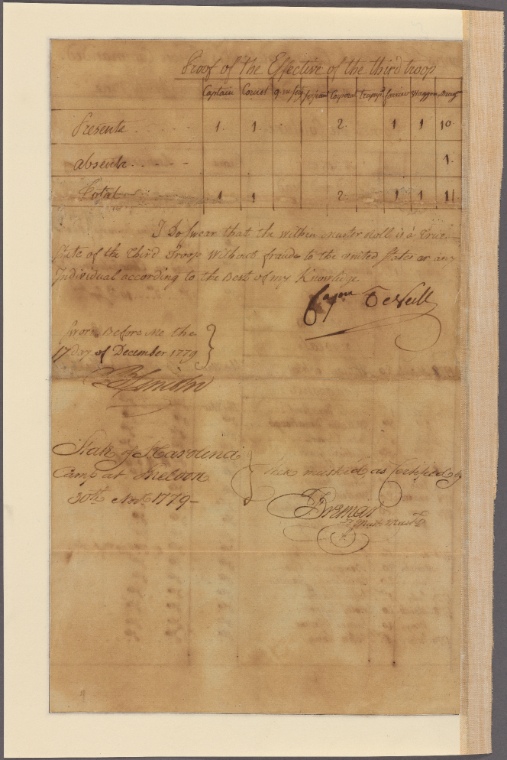 Proof of the Effective of the third troop
Captain Cornet Corporal Farrier
Presents 1 1 2 1 1 10
absents 1
Total 1 1 2 1 1 11
I Do Swear that the within muster Roll is a True
State of the Third Troop without fraude to the united States or any
Individual according to the Best of my Knowledge
Sworn Before me the
17 Day of December 1779
Smith
State of S Carolina
Camp at Sheldon
30th Nov 1779
Then mustered as Certified by